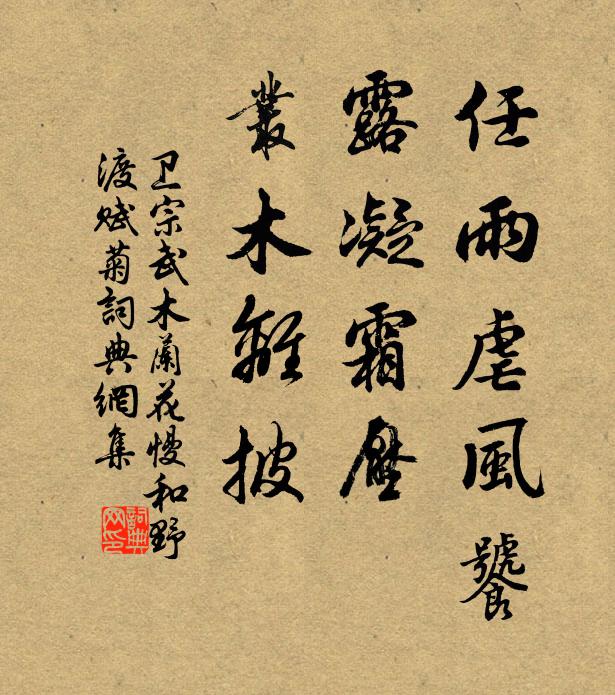 任雨虐風饕
露凝霜壓
叢木離披
卫宗武木蘭花慢和野
渡赋菊詞典網集
詞典网印